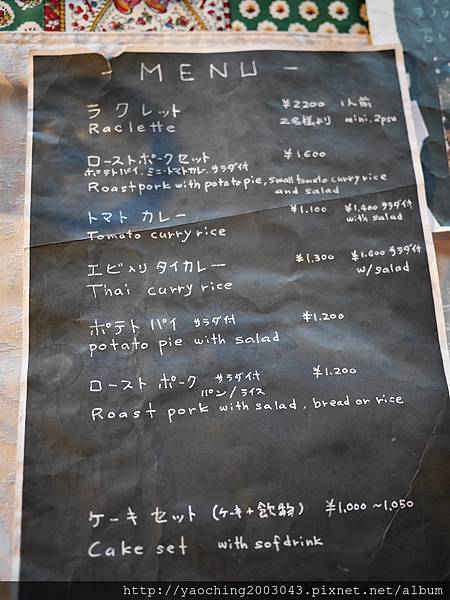 - MENU -
ラクレット ¥2200 1人前
Raclette 2名様より mini. 2psn
ローストポークセット ¥1.600
ポテトパイ、ミニ・トマトカレー、サラダ付
Roast pork with potato pie, small tomato curry rice
and salad
トマト カレー ¥1.100 ¥1.400 サラダ付
Tomato curry rice with salad
エビ入り タイカレー ¥1.300 ¥1.600 サラダ付
Thai curry rice w/salad
ポテト パイ サラダ付 ¥1.200
potato pie with salad
ロースト ポーク サラダ付 ¥1.200
パン/ライス
Roast pork with salad, bread or rice
ケーキ セット (ケーキ+飲物) ¥1,000~1,050
Cake set with sofdrink
http://yaoching2003043.pixnet.net/album